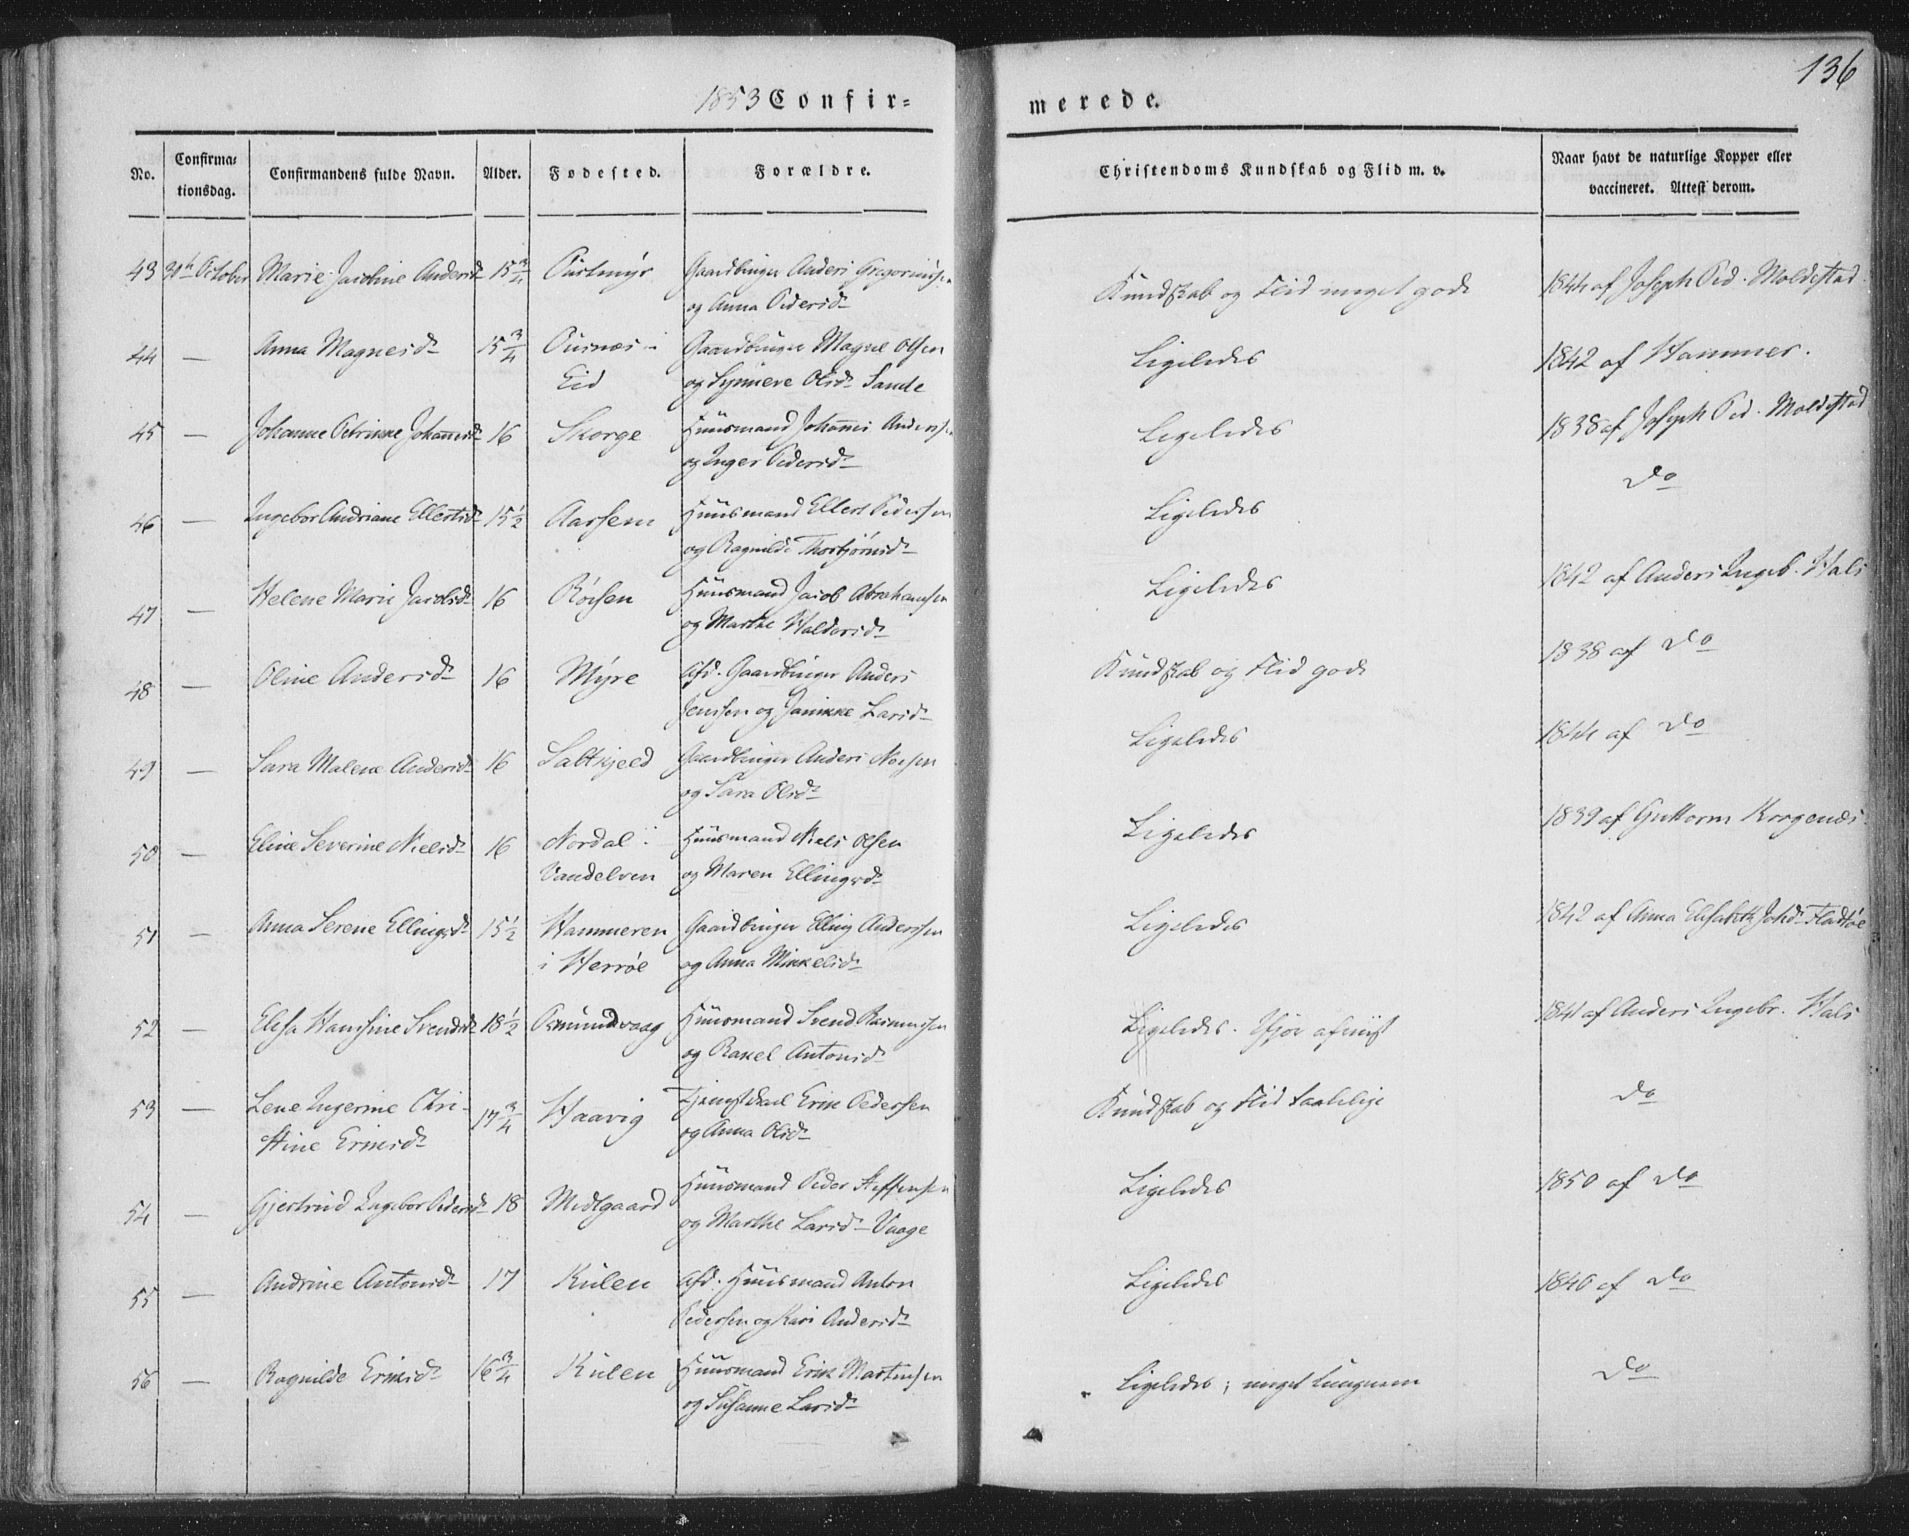 136
1853 Confir-
merede.
No.
Confirma-
tionsdag.
Confirmandens fulde Navn.
Alder.
Fødested.
Forældre.
Christendoms Kundskab og Flid m. v.
Naar havt de naturlige Kopper eller
vaccineret. Attest derom.
43 30te October Marie Jacobine Andersdr 15 3/4 Gaardbruger Anders Gregoriussen
og Anna Pedersdr
Kundskab og Flid meget gode 1844 af Joseph Ped. Moldestad
44 — Anna Magnesdr 15 3/4 Ousnæs i Gaardbruger Magne Olsen
Eid og Synneve Olsdr Sande
Ligeledes 1842 af Hammer.
45 — Johanne Petrikke Johannesdr 16 Skorge Huusmand Johannes Anderssen
og Inger Pedersdr
Ligeledes 1838 af Joseph Ped. Moldestad
46 — Ingebor Andriane Ellertsdr 15 1/2 Aarsem Huusmand Ellert Pedersen
og Ragnilde Thorbjørnsdr
Ligeledes Do
47 — Helene Marie Jacobsdr 16 Røesen Huusmand Jacob Abrahamsen
og Marthe Haldorsdr
Ligeledes 1842 af Anders Ingeb. Hals
48 — Oline Andersdr 16 Myre Afd. Gaardbruger Anders
Jenssen og Janikke Larsdr
Kundskab og Flid gode 1838 af Do
49 — Sara Malene Andersdr 16 Saltkjeld Gaardbruger Anders
og Sara Olsdr
Ligeledes 1844 af Do
50 — Eline Severine Nielsdr 16 Nordal i Huusmand Niels Olsen
Vandelven og Maren Ellingsdr
Ligeledes 1839 af Guttorm Krogenæs
51 — Anna Serene Ellingsdr 15 1/2 Hammeren Gaardbruger Elling Anderssen
i Herrøe og Anna Mikkelsdr
Ligeledes 1842 af Anna Elisabeth Johsdr Fladøe
52 — Elisa Hansine Svendsdr 18 1/2 Osmundvaag Huusmand Svend Rasmussen
og Rakel Antonsdr
Ligeledes. Ifjor afviist 1841 af Anders Ingebr. Hals
53 — Lene Ingerine Chri- 17 3/4 Haavig Tjenestekarl Erik Pedersen
stine Eriksdr og Anna Olsdr
Kundskab og Flid taalelige Do
54 — Gjertrud Ingebor Pedersdr 18 Midtgaard Huusmand Peder Steffensen
og Marthe Larsdr Vaage
Ligeledes 1850 af Do
55 — Andrine Antonsdr 17 Kulen Afd. Huusmand Anton
Pedersen og Kari Andersdr
Ligeledes 1840 af Do
56 — Ragnilde Eriksdr 16 3/4 Kulen Huusmand Erik Martinsen
og Susanne Larsdr
Ligeledes; meget tungnem Do